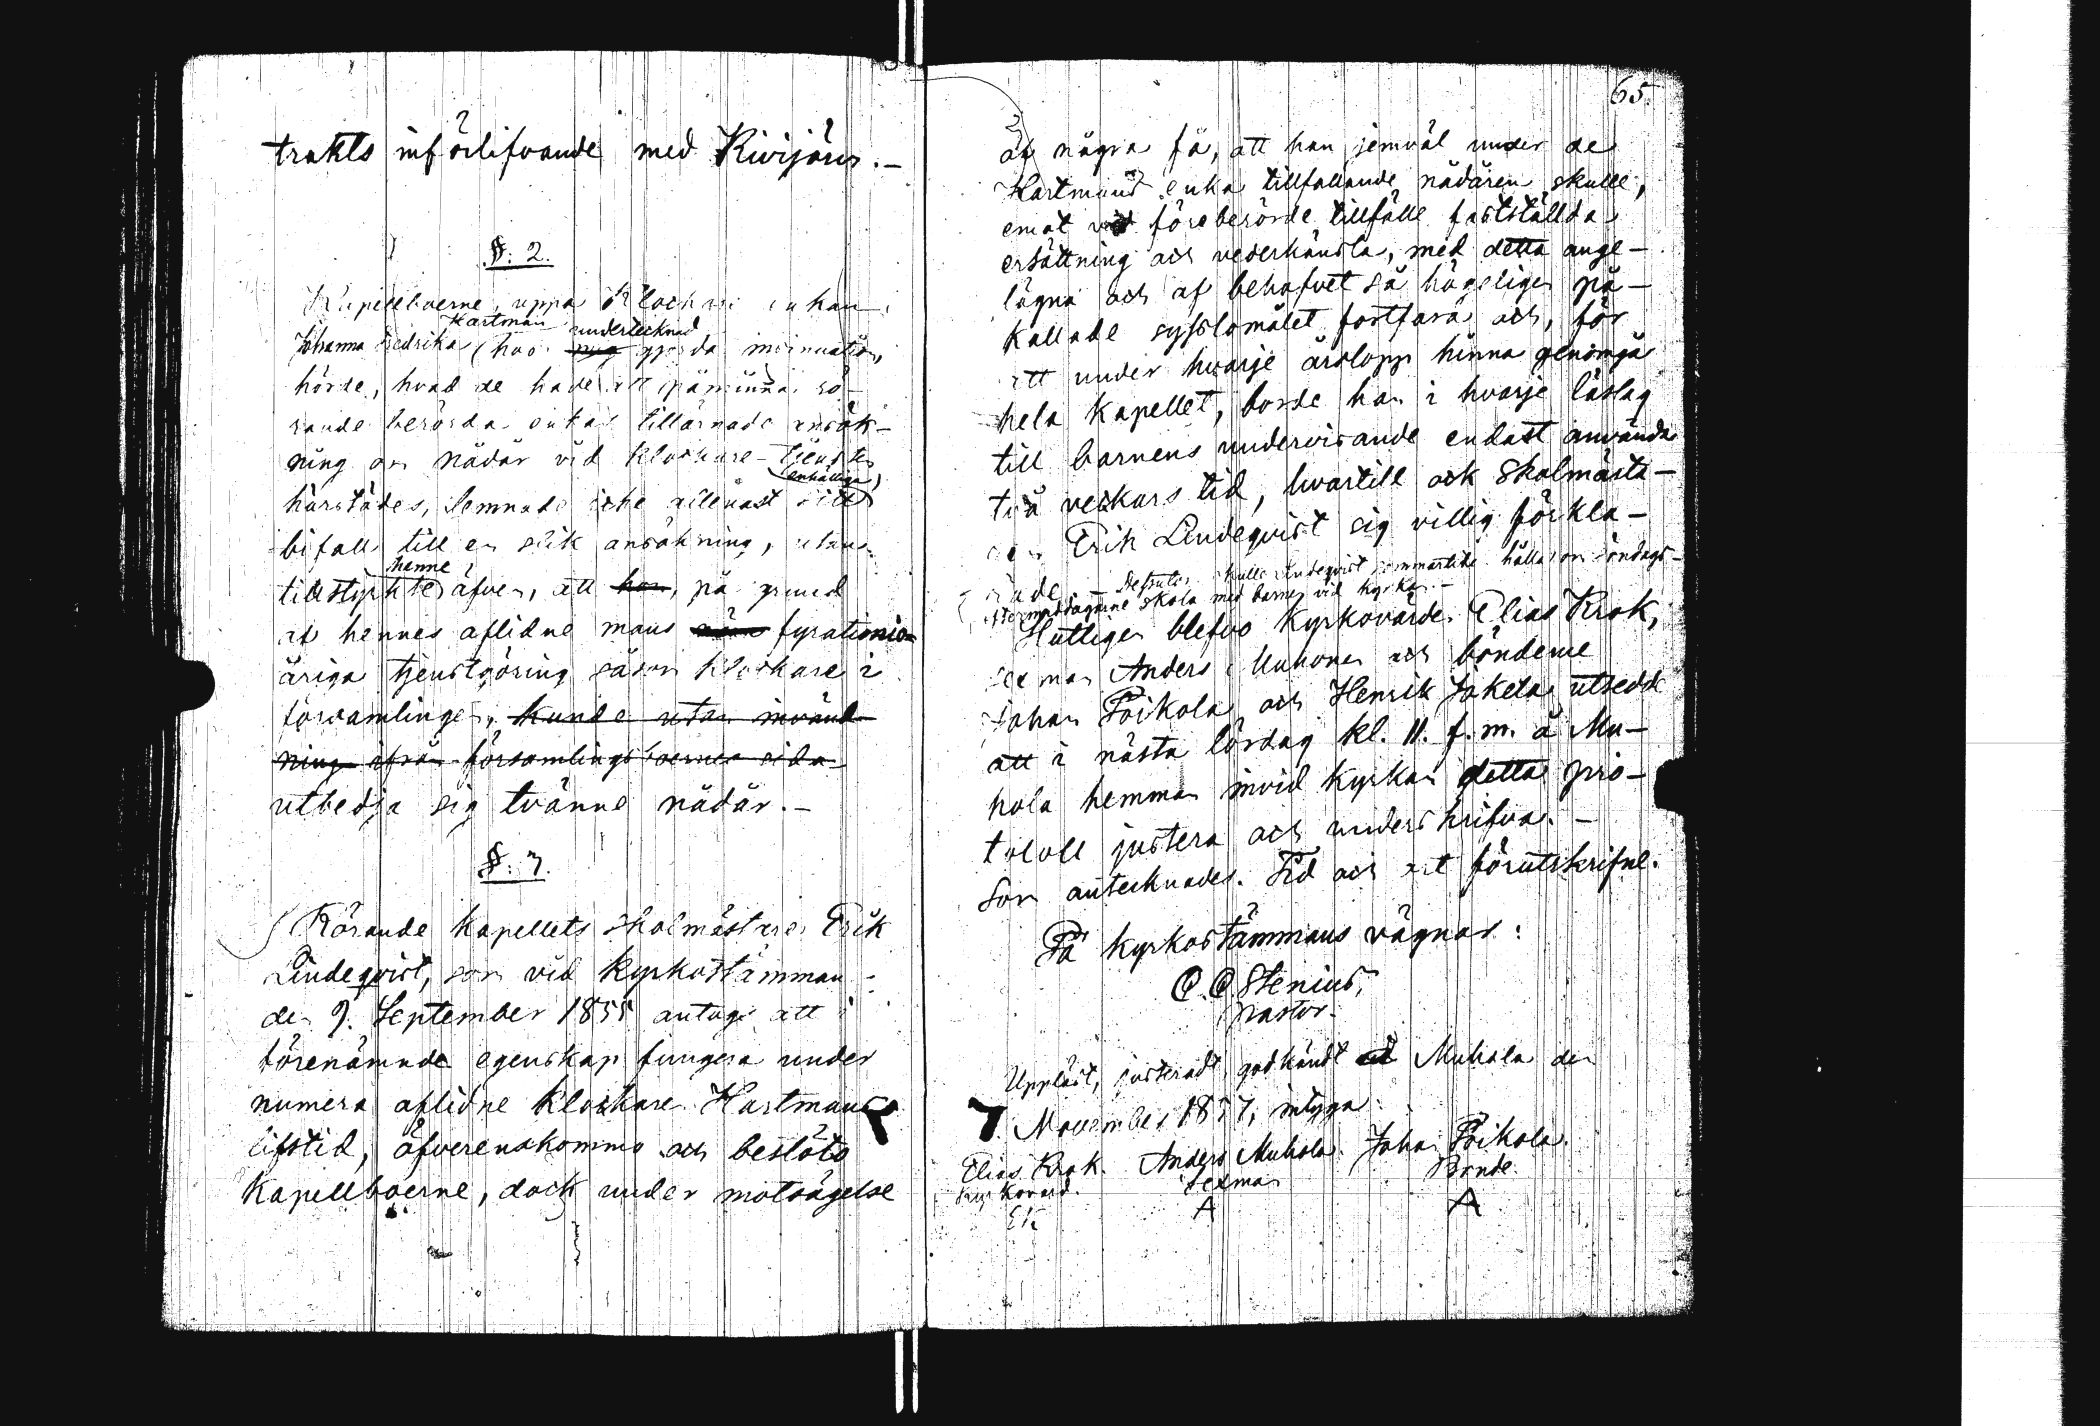 trakts införlifvande med Kivijärvi.—
§: 2.
Kapellboerne, uppå Klockare enkan
Hartman undertecknad
Johanna Fredrika (hos mig gjorda insinuation,
hörde, hvad de hade att påminna rö-
rande berörda enkas tillärnade ansök-
ning om nådår vid klockare-tjensten
enhälliga
härstädes, lemnade icke allenast sitt
bifall till en slik ansökning, utan
henne
tillstyrkte äfven, att hon, på grund
af hennes aflidne mans fyrationio-
åriga tjenstgöring såsom klockare i
församlingen, kunde utan invänd-
ning ifrån församlingsboernes sida
utbedja sig tvänne nådår.—
§: 3.
Rörande kapellets skolmästare Erik
Lindeqvist, som vid kyrkostämman
den 9. September 1855 antogs att i
förenämnde egenskap fungera under
numera aflidne klockare Hartmans
lifstid, öfverenskommo och beslöto
Kapellboerne, dock under motsägelse
65.
af några få, att han jemväl under de
Hartmans enka tillfallande nådåren skulle,
emot vid föreberörde tillfälle fastställda
ersättning och vederkänsla, med detta ange-
lägna och af behofvet så högeligen på-
kallade sysslomålet fortfara och, för
att under hvarje årslopp hinna genomgå
hela kapellet, borde han i hvarje läslag
till barnens undervisande endast använda
två veckors tid, hvartill ock Skolmästa-
ren Erik Lindeqvist sig villig förkla-
rade.— Dessutom skulle Lindeqvist sommartide hålla om söndags-
eftermiddagarne skola med barnen vid kyrkan.—
Hütliges blefvo Kyrkovärden Elias Krok,
Sexman Anders Muhonen och bönderne
Johan Poikola och Henrik Jokela utsedde
att i nästa lördag kl. 11. f.m. å Mu-
hola hemman invid kyrkan detta pro-
tokoll justera och underskrifva.—
Som antecknades. Tid och ort förutskrifne.
På kyrkostämmans vägnar:
C. C. Stenius,
Pastor.
Uppläst, justeradt, godkändt å Muhola den
7. November 1857, intyga:
Elias Krok. Anders Muhola. Johan Poikola.
Kyrkovärd. Sexman Bonde.
EK A A